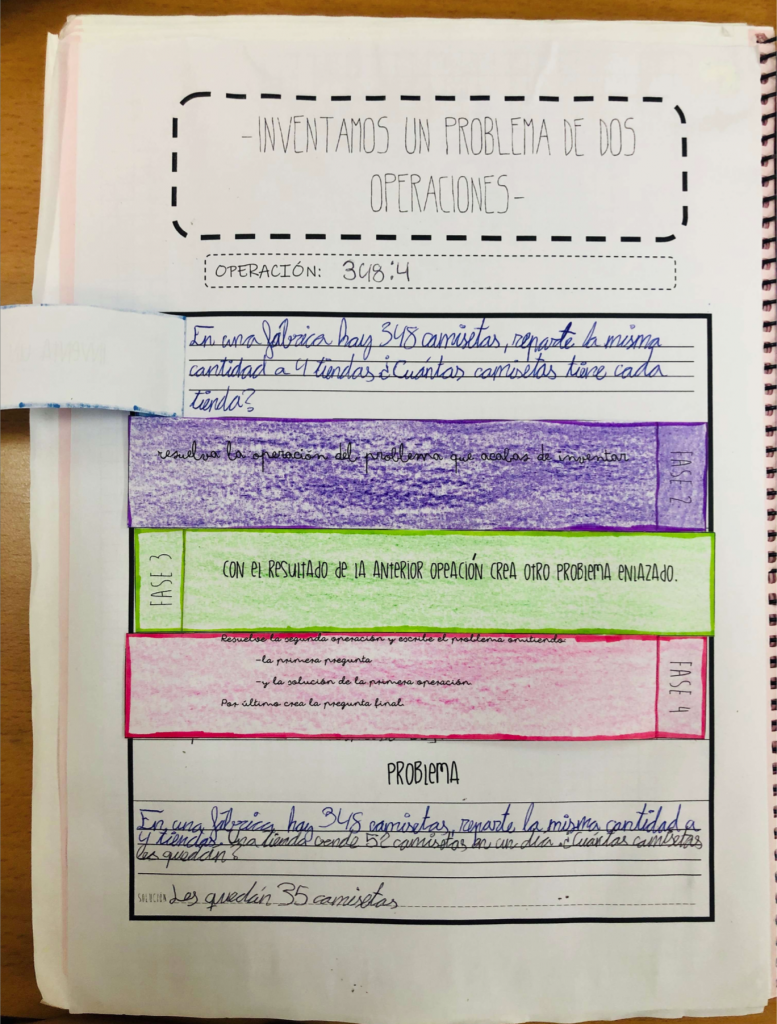 -INVENTAMOS UN PROBLEMA DE DOS
OPERACIONES-
OPERACIÓN: 348:4
En una fábrica hay 348 camisetas, reparte la misma
cantidad a 4 tiendas ¿Cuántas camisetas tiene cada
tienda?
resuelva la operación del problema que acabas de inventar
FASE 2
FASE 3
CON EL RESULTADO DE LA ANTERIOR OPEACIÓN CREA OTRO PROBLEMA ENLAZADO.
Resuelve la segunda operación y escribe el problema omitiendo
-la primera pregunta
-y la solución de la primera operación.
Por último crea la pregunta final
FASE 4
PROBLEMA
En una fábrica hay 348 camisetas, reparte la misma cantidad a
4 tiendas. Una tienda vende 52 camisetas en un día. ¿Cuántas camisetas
les quedan?
SOLUCIÓN Les quedán 35 camisetas